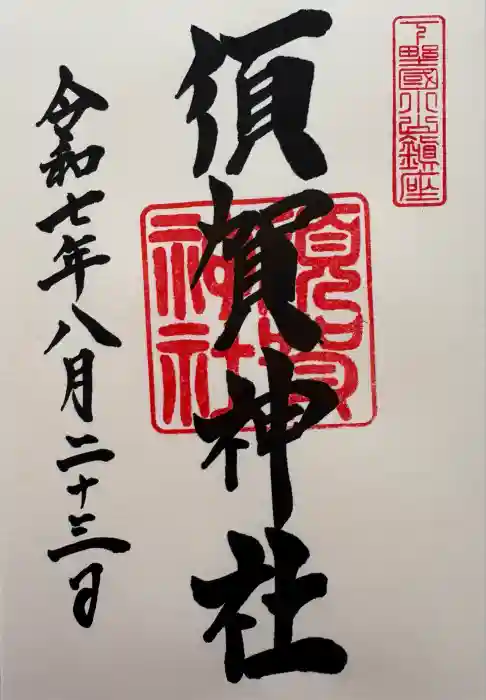 下野國小山鎮座
須賀神社
須賀神社
令和七年八月二十三日